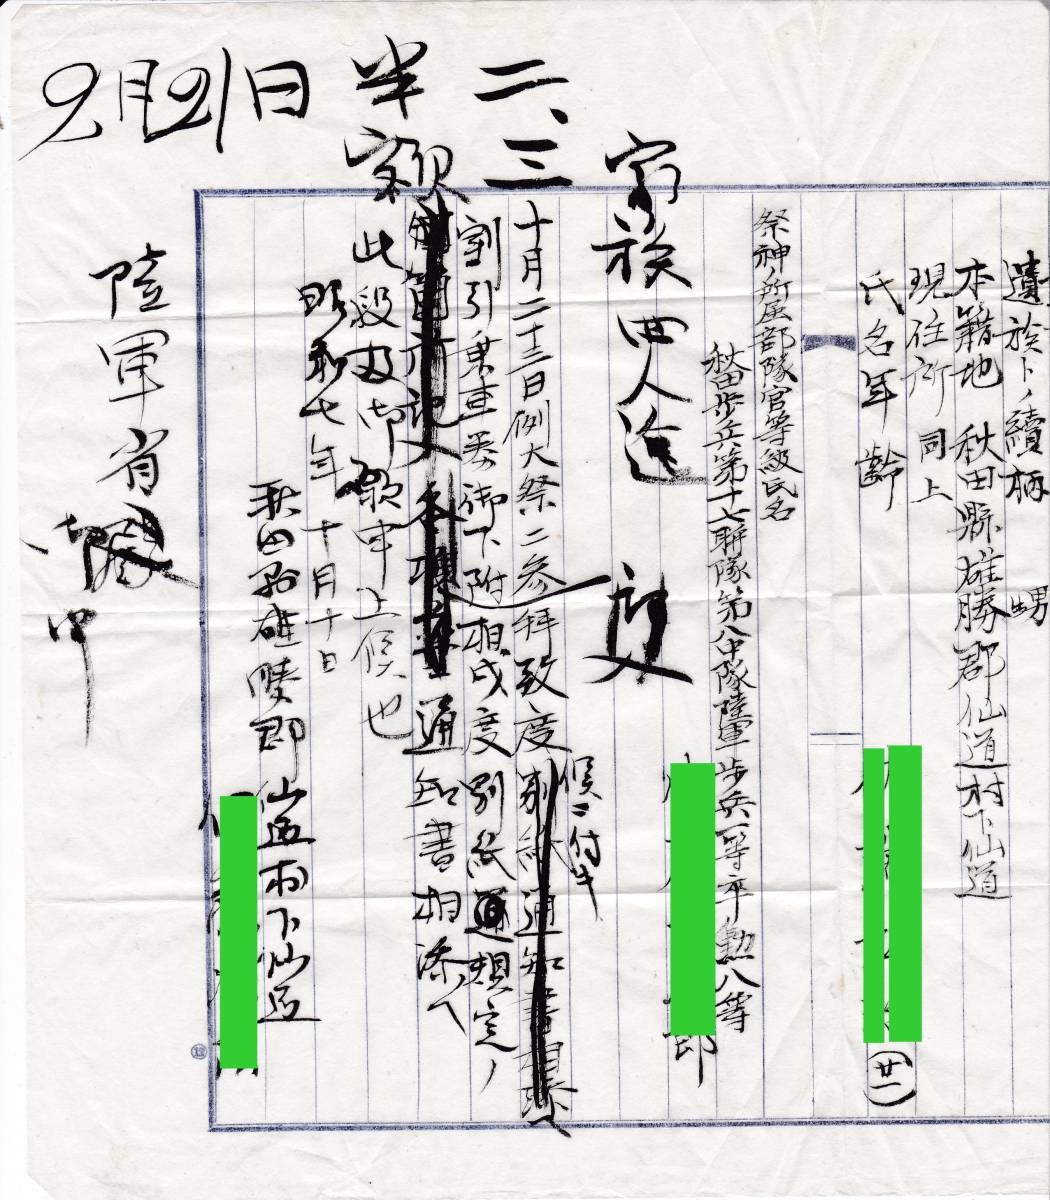 遺族トノ續柄 甥
本籍地 秋田縣雄勝郡仙道村下仙道
現住所 同上
氏名年齢
(廿一)
祭神ノ所属部隊官等級氏名
秋田歩兵第十七聯隊第八中隊陸軍歩兵一等卒勲八等
郎
家族四人迄
二、三
半額
9月21日
十月二十三日例大祭ニ参拝致度
候ニ付キ
別紙通知書相添
割引乗車券御下附相成度別紙通想定ノ
通知書相添へ
此段及御願申上候也
昭和七年十月十日
秋田縣雄勝郡仙道村下仙道
陸軍省御中
⑫